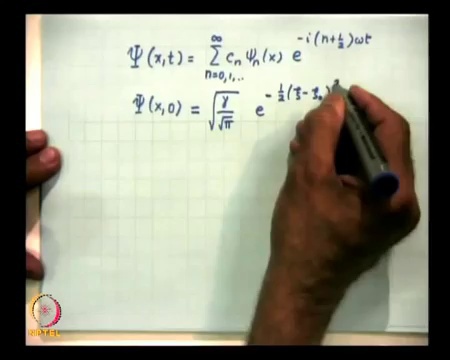 Ψ(x,t) = ∑_{n=0,1,..}^{∞} c_n ψ_n(x) e^{-i(n+½)ωt}
Ψ(x,0) = √(γ/√π) e^{-½(ξ-ξ₀)²}
NPTEL